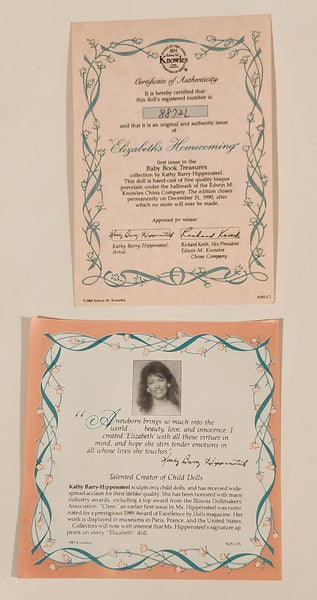 Edwin M.
Knowles
Certificate of Authenticity
It is hereby certified that
this doll's registered number is:
8872L
and that it is an original and authentic issue
of
"Elizabeth's Homecoming"
first issue in the
Baby Book Treasures
collection by Kathy Barry-Hippensteel.
This doll is hand-cast of fine quality bisque
porcelain under the hallmark of the Edwin M.
Knowles China Company. The edition closes
permanently on December 31, 1990, after
which no more will ever be made.
Approved for release:
Kathy Barry-Hippensteel Richard Keith
Kathy Barry-Hippensteel, Richard Keith, Vice President
Artist Edwin M. Knowles
China Company
©1989 Edwin M. Knowles
"A newborn brings so much into the
world . . . beauty, love, and innocence. I
created 'Elizabeth' with all these virtues in
mind, and hope she stirs tender emotions in
all whose lives she touches."
Kathy Barry Hippensteel
Talented Creator of Child Dolls
Kathy Barry-Hippensteel sculpts only child dolls, and has received wide-
spread acclaim for their lifelike quality. She has been honored with many
industry awards, including a top award from the Illinois Dollmakers
Association. "Chen," an earlier first-issue by Ms. Hippensteel was nomi-
nated for a prestigious 1989 Award of Excellence by Dolls magazine. Her
work is displayed in museums in Paris, France, and the United States.
Collectors will note with interest that Ms. Hippensteel's signature ap-
pears on every "Elizabeth" doll.
1989 Knowles